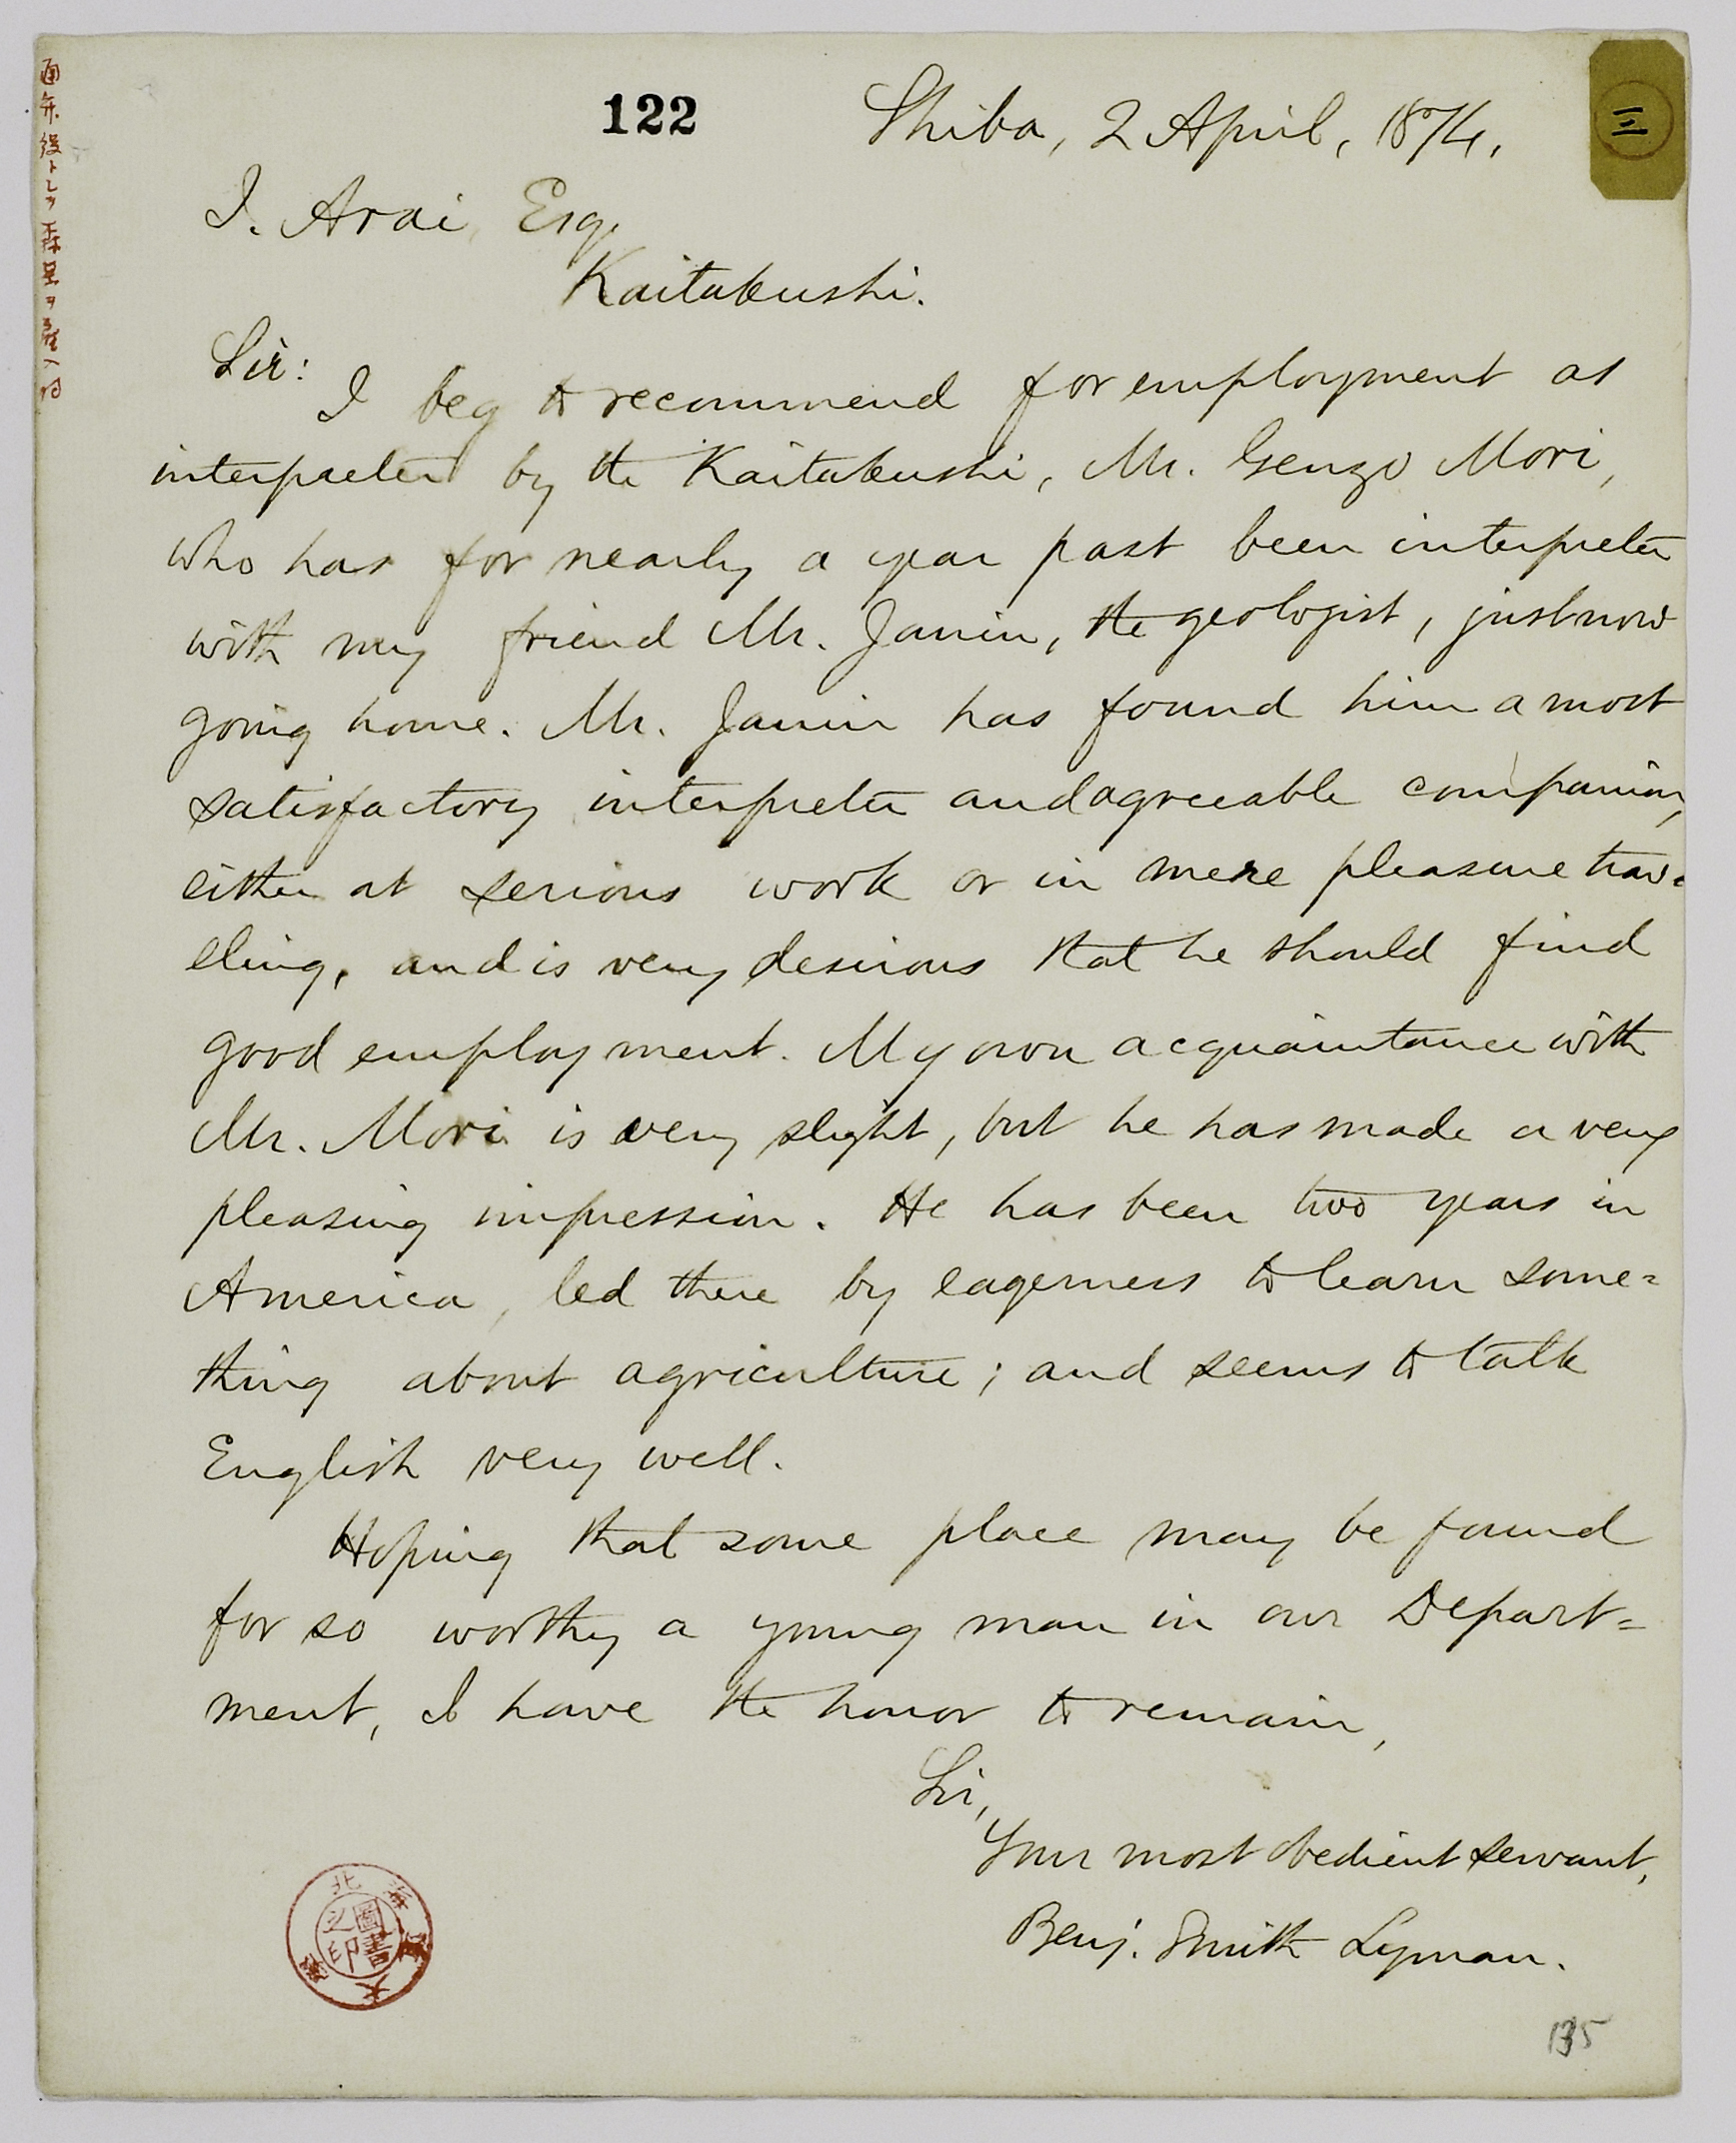 122
Shiba, 2 April, 1874.
三
I. Arai, Esq.
Kaitakushi.
Sir:
I beg to recommend for employment as
interpreter by the Kaitakushi, Mr. Genzo Mori,
who has for nearly a year past been interpreter
with my friend Mr. Janin, the geologist, just now
going home. Mr. Janin has found him a most
satisfactory interpreter and agreeable companion,
either at serious work or in mere pleasure trav=
eling, and is very desirous that he should find
good employment. My own acquaintance with
Mr. Mori is very slight, but he has made a very
pleasing impression. He has been two years in
America, led there by eagerness to learn some=
thing about agriculture; and seems to talk
English very well.
Hoping that some place may be found
for so worthy a young man in our Depart=
ment, I have the honor to remain,
Sir,
Your most obedient servant,
Benj. Smith Lyman.
圖書之印
135